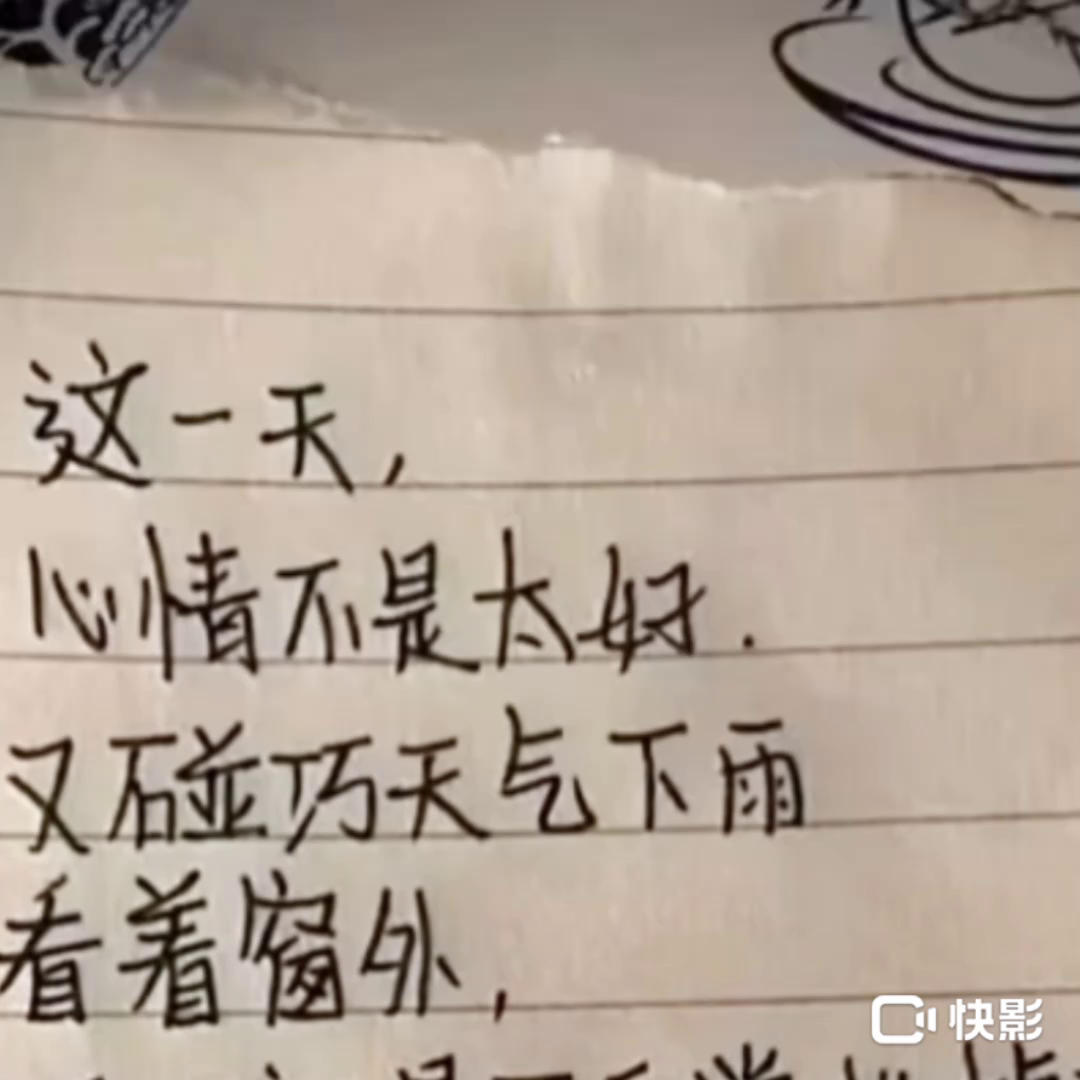 这一天，
心情不是太好.
又碰巧天气下雨
看着窗外，
快影